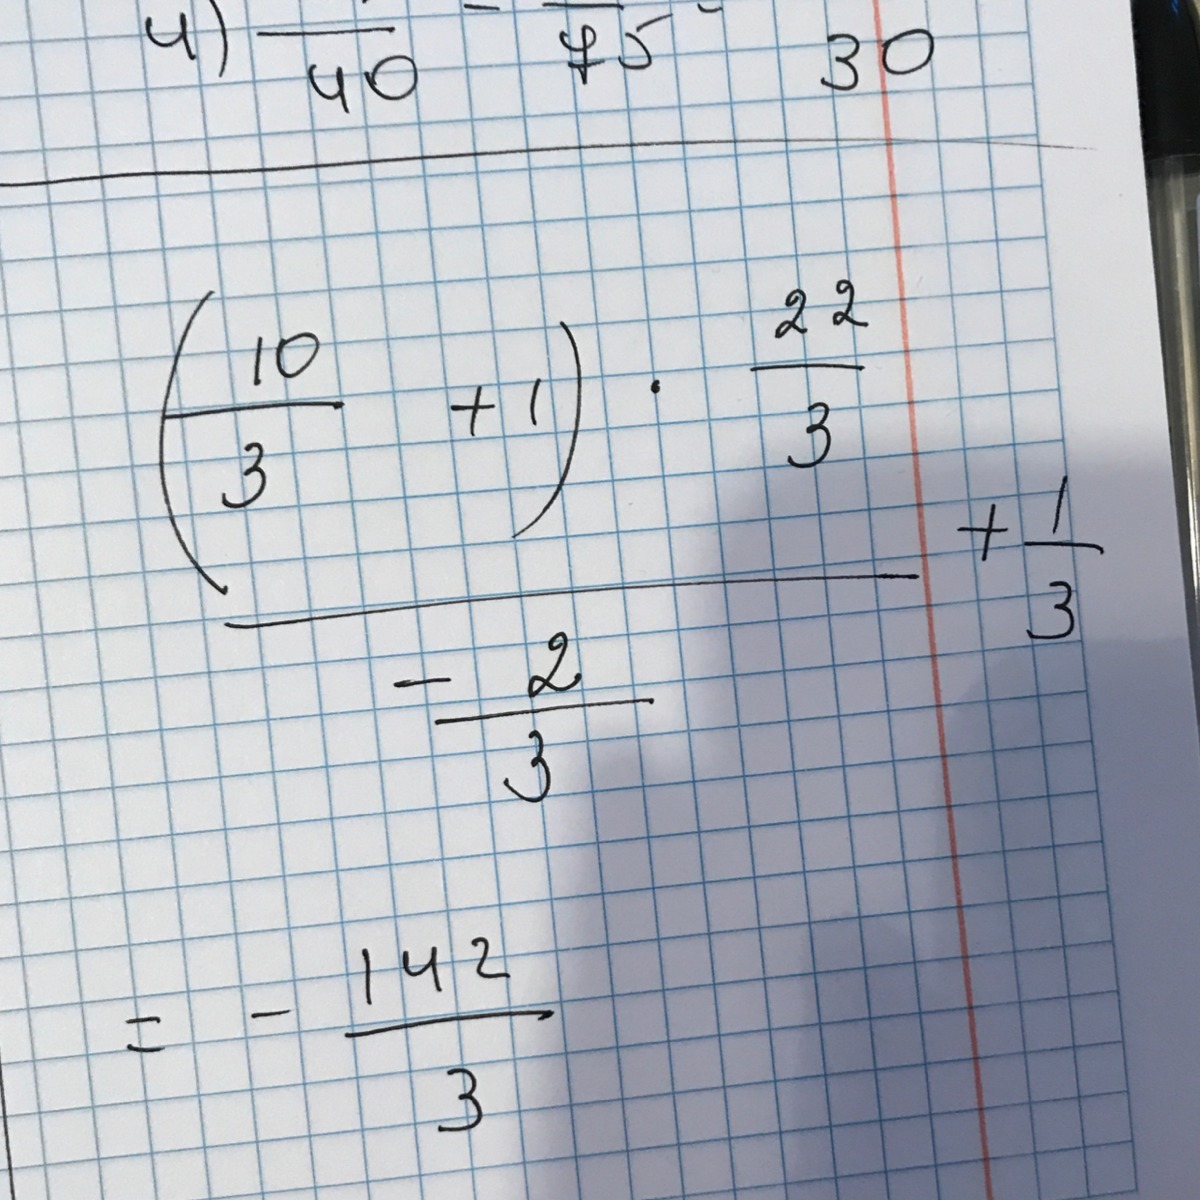 4) 40 - 75 - 30
( 10/3 + 1 ) · 22/3
+ 1/3
- 2/3
= - 142/3